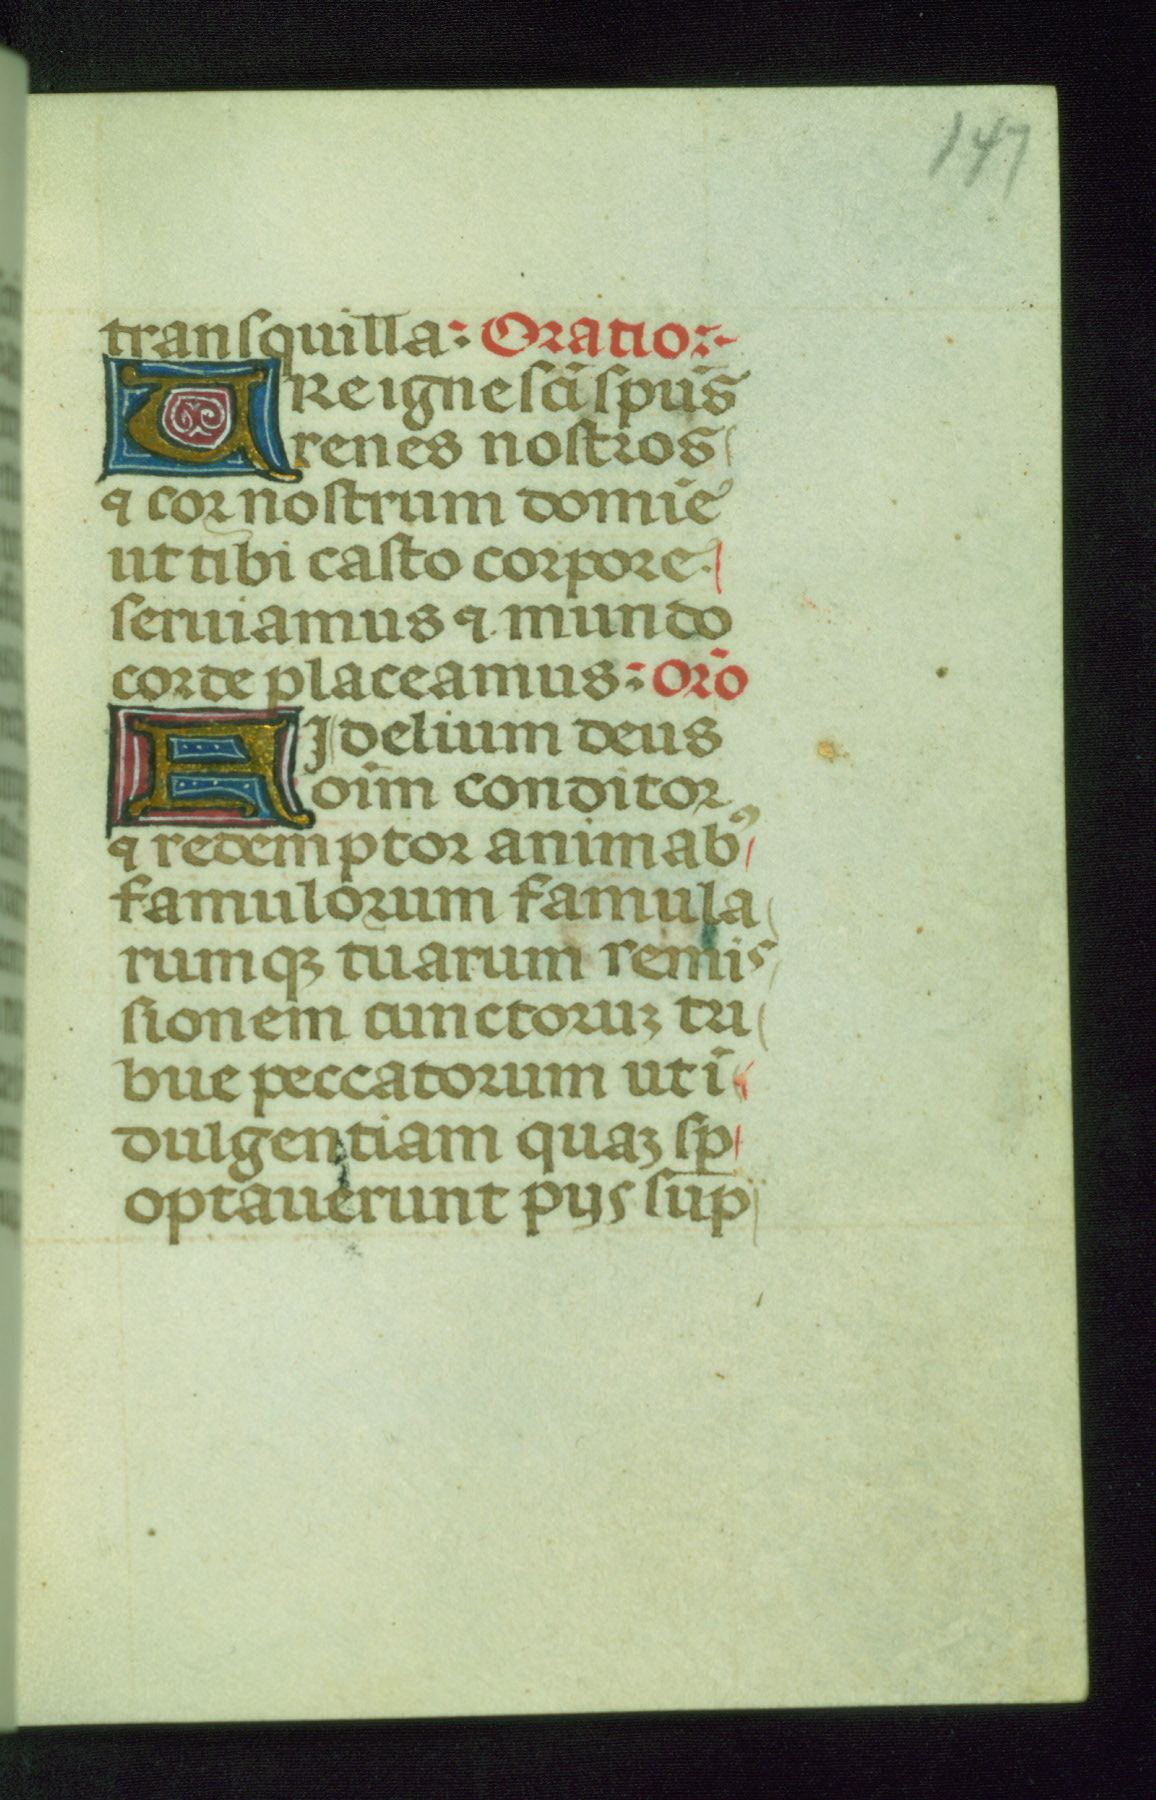 147
transquilla: Oratio:
URe igne sc̄i spūs
renes nostros
⁊ cor nostrum domīe
ut tibi casto corpore.
seruiamus ⁊ mundo
corde placeamus: Orō
FIdelium deus
oīm conditor
⁊ redemptor animabꝰ
famulorum famula
rumqꝫ tuarum remis
sionem cunctoruꝫ tri
bue peccatorum ut ī
dulgentiam quaꝫ sꝑ
optauerunt pijs sup